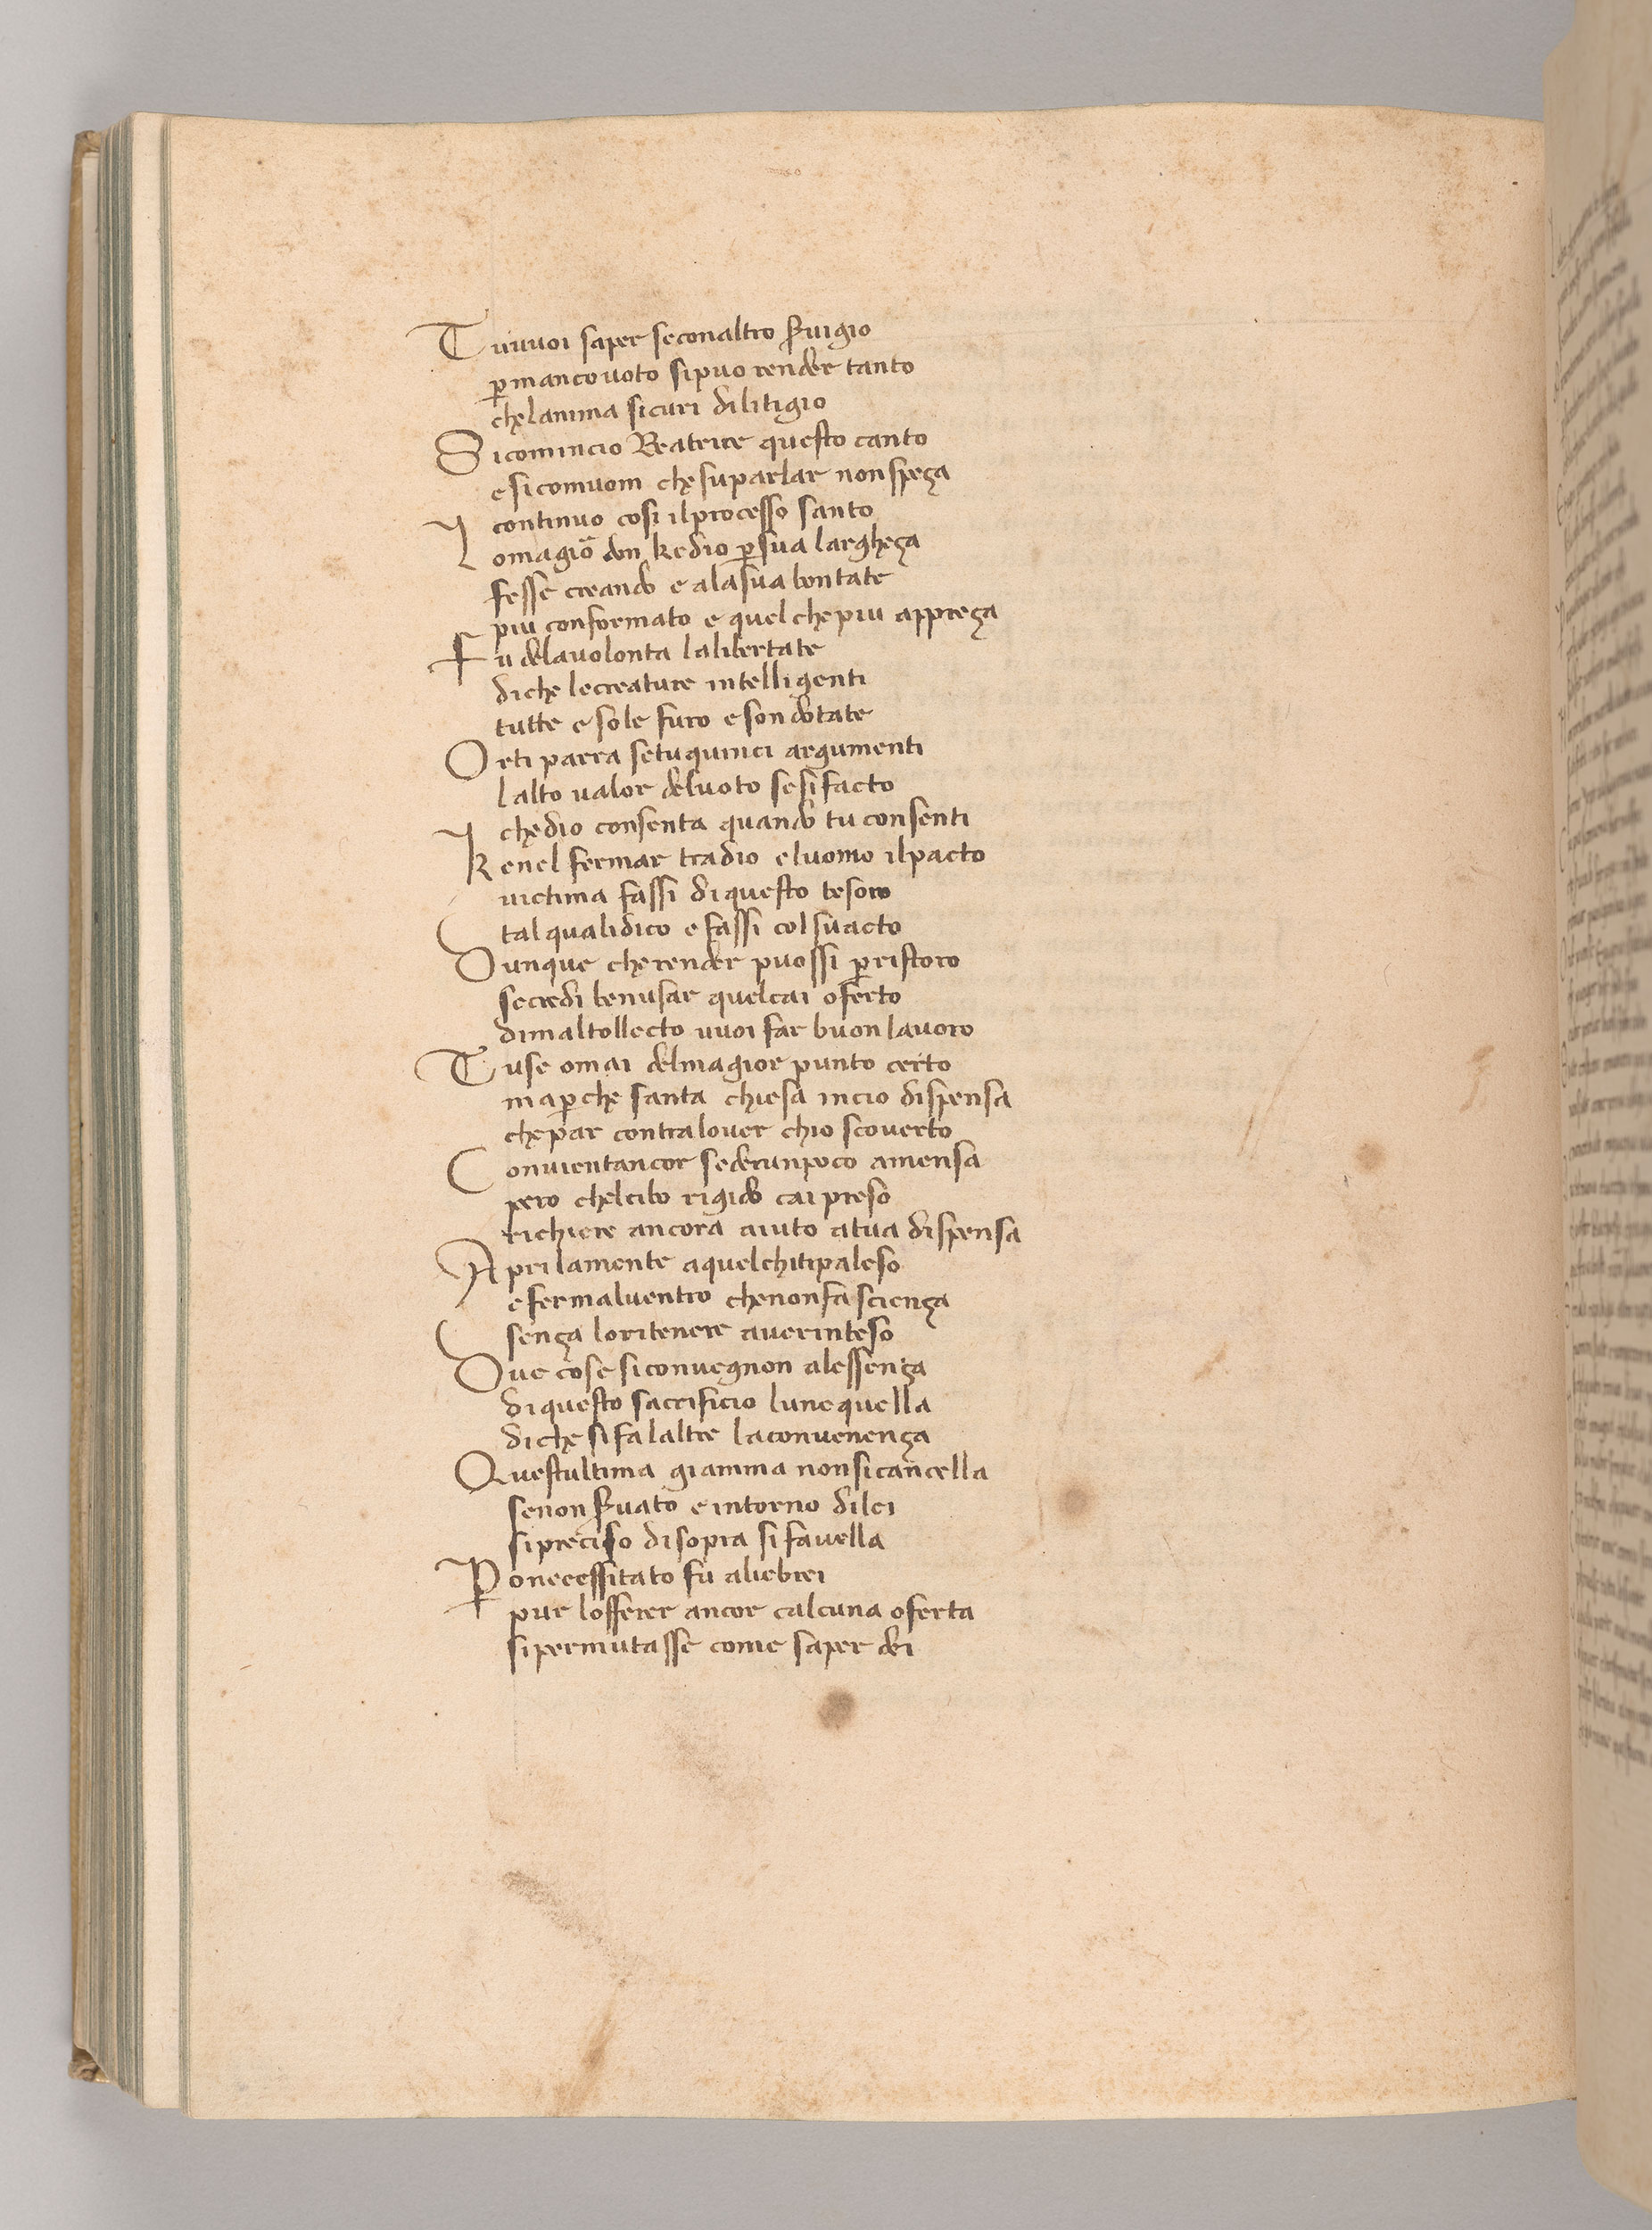 Tu uuoi saper se con altro ꝓuigio
ꝑ manco uoto si puo render tanto
che lanima sicuri di litigio
Si comincio Beatrice questo canto
e si comuom che su parlar non speça
continuo cosi il processo santo
Lo magiō don ke dio ꝑ sua largheça
fesse creando e ala sua bontate
piu conformato e quel che piu appreça
Fu de la uolonta la libertate
di che le creature intelligenti
tutte e sole furo e son dotate
Or ti parra se tu quinci argumenti
lalto ualor del uoto se si facto
che dio consenta quando tu consenti
Ke nel fermar tra dio e luomo il pacto
uictima fassi di questo tesoro
tal quali dico e fassi col su acto
Dunque che render puossi ꝑ ristoro
se credi ben usar quel cai oferto
di mal tollecto uuoi far buon lauoro
Tu se omai del magior punto certo
ma ꝑche santa chiesa in cio dispensa
che par contra louer chio scouerto
Conuienti ancor seder un poco a mensa
pero chel cibo rigido cai preso
richiere ancora aiuto a tua dispensa
Apri la mente a quel chi ti paleso
e fermal uentro che non fa sciença
sença lo ritenere auer inteso
Due cose si conuegnon a lessença
di questo sacrificio lune quella
di che si fa laltre la conuenença
Questultima giamma non si cancella
se non ẜuato e intorno di lei
si preciso di sopra si fauella
Ꝑo necessitato fu a li ebrei
pur lofferer ancor calcuna oferta
si permutasse come saper dei